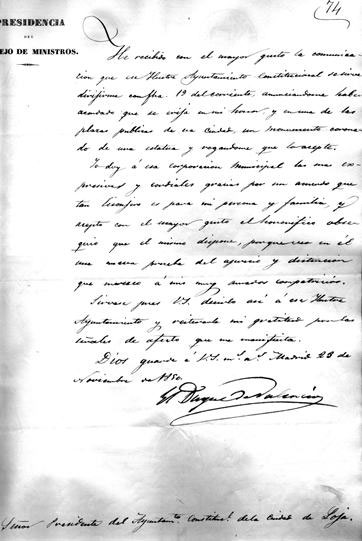 74
PRESIDENCIA
DEL
EJO DE MINISTROS.
He recibido con el mayor gusto la comunica-
cion que ese Ilustre Ayuntamiento Constitucional se sirve
dirijirme con fha. 19 del corriente, anunciandome haber
acordado que se erija en mi honor, y en una de las
plazas publicas de esa Ciudad, un monumento corona-
do de una estatua y rogandome que lo acepte.
Yo doy á esa corporacion Municipal las mas ex-
presivas y cordiales gracias por un acuerdo que
tan lisonjero es para mi persona y familia, y
acepto con el mayor gusto el honorífico obse-
quio que el mismo dispone, porque veo en él
una nueva prueba del aprecio y distincion
que merezco á mis muy amados compatricios.
Sirvase pues V.S. decirlo asi á ese Ilustre
Ayuntamiento y reiterarle mi gratitud por las
señales de afecto que me manifiesta.
Dios guarde á V.S. m.s a.s Madrid 23 de
Noviembre de 1850.
El Duque de Valencia
Señor Presidente del Ayuntam.to Constitu.l de la Ciudad de Loja.